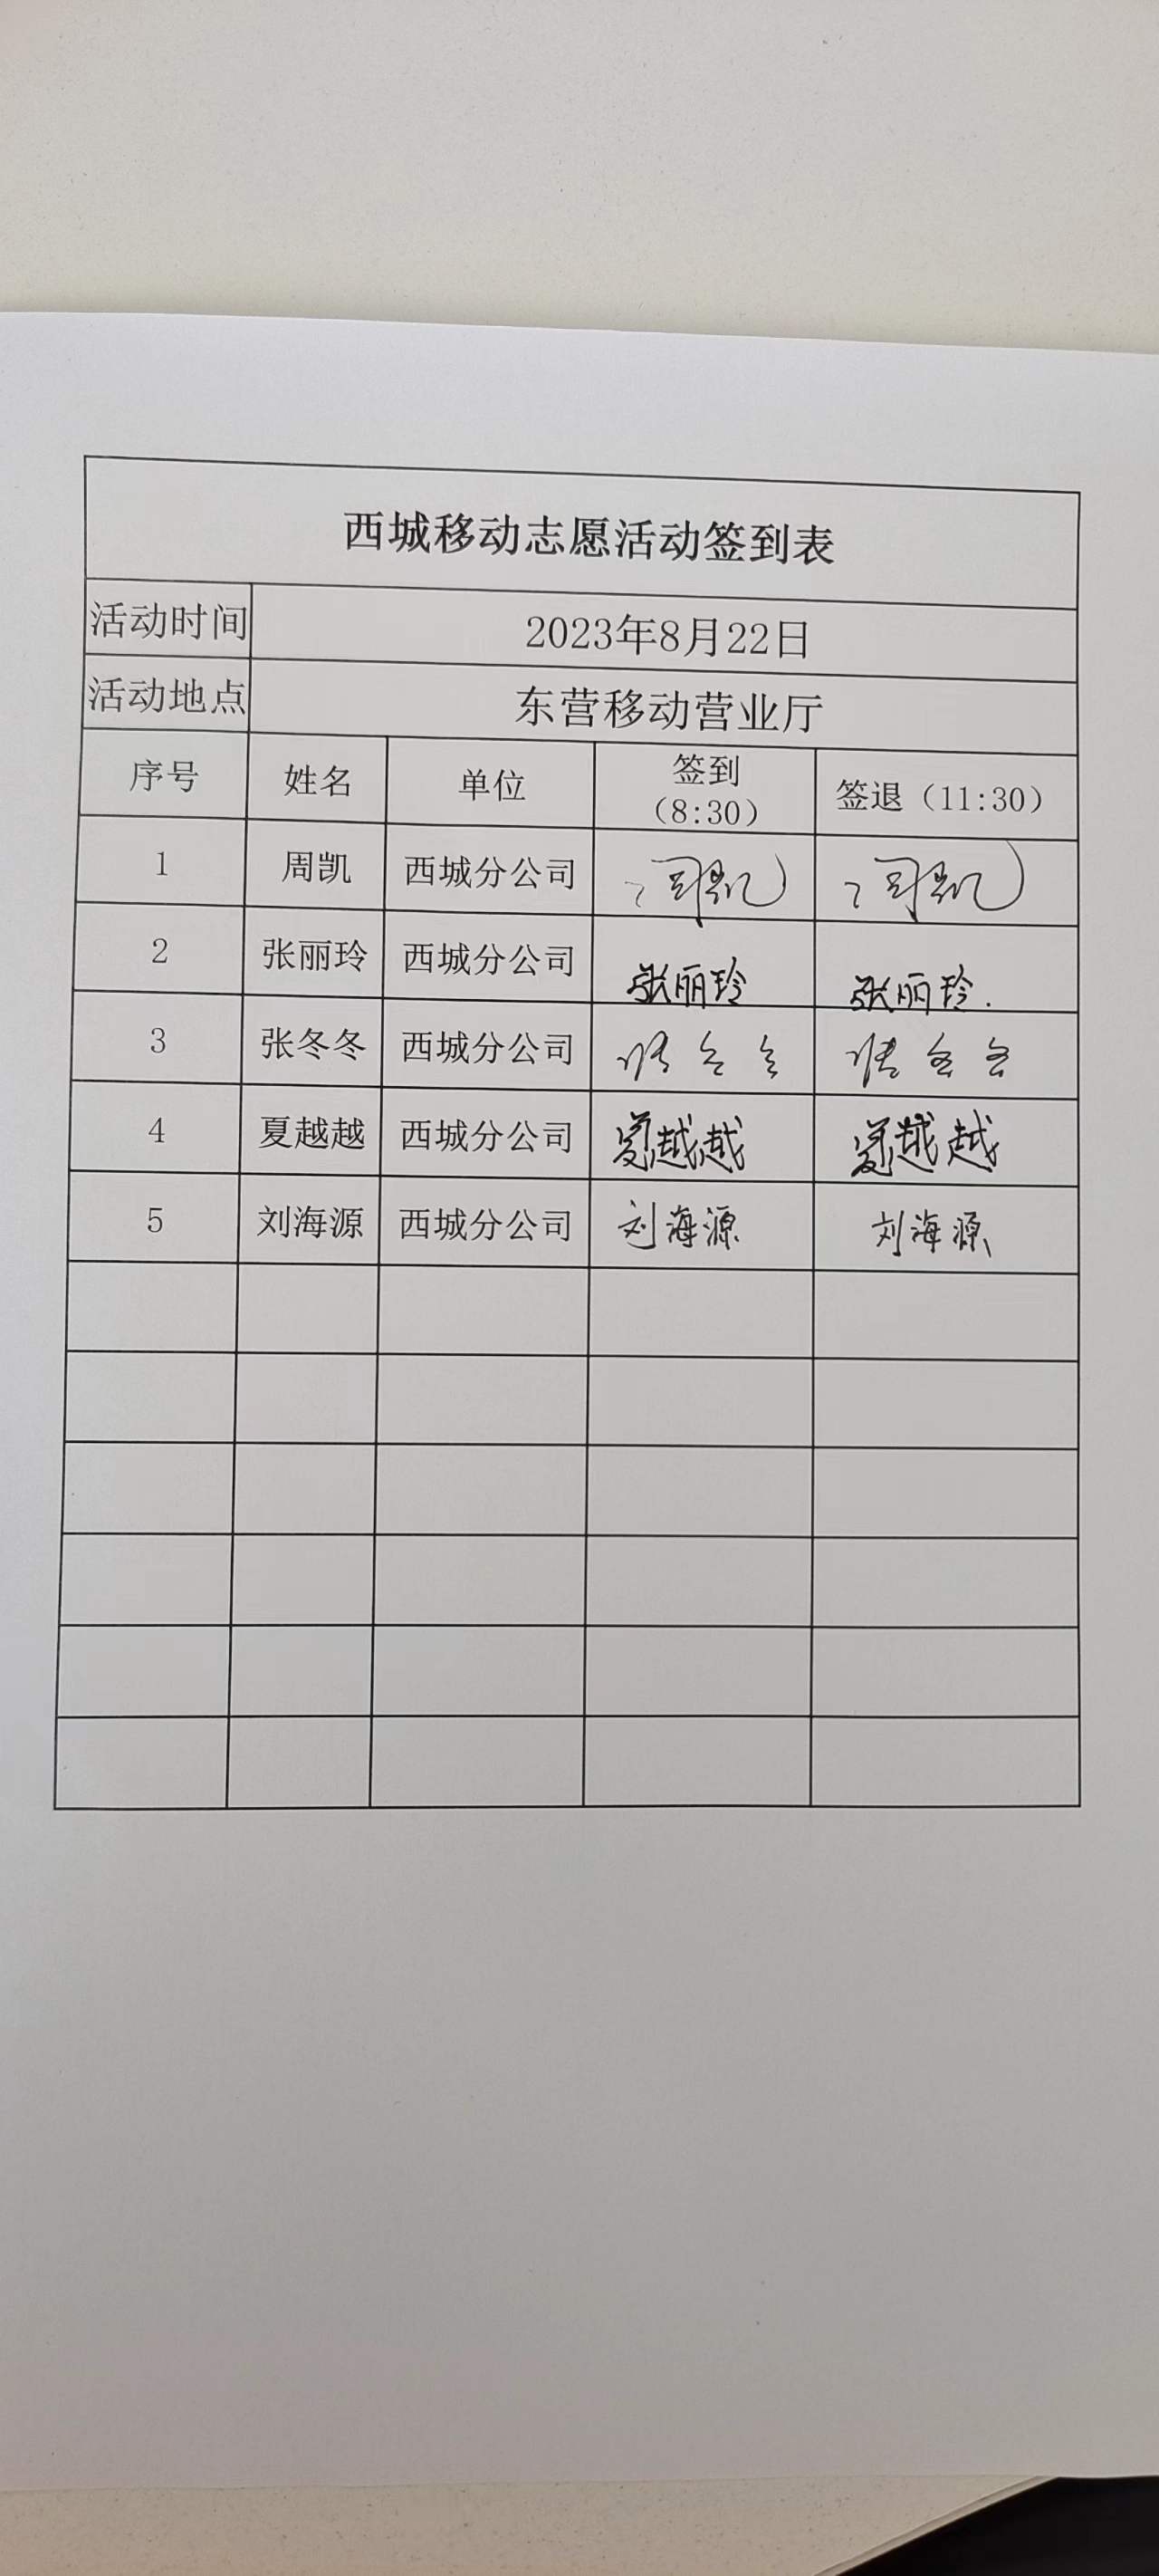 西城移动志愿活动签到表
活动时间 2023年8月22日
活动地点 东营移动营业厅
序号 姓名 单位 签到（8:30） 签退（11:30）
1 周凯 西城分公司 周凯 周凯
2 张丽玲 西城分公司 张丽玲 张丽玲.
3 张冬冬 西城分公司 张冬冬 张冬冬
4 夏越越 西城分公司 夏越越 夏越越
5 刘海源 西城分公司 刘海源 刘海源